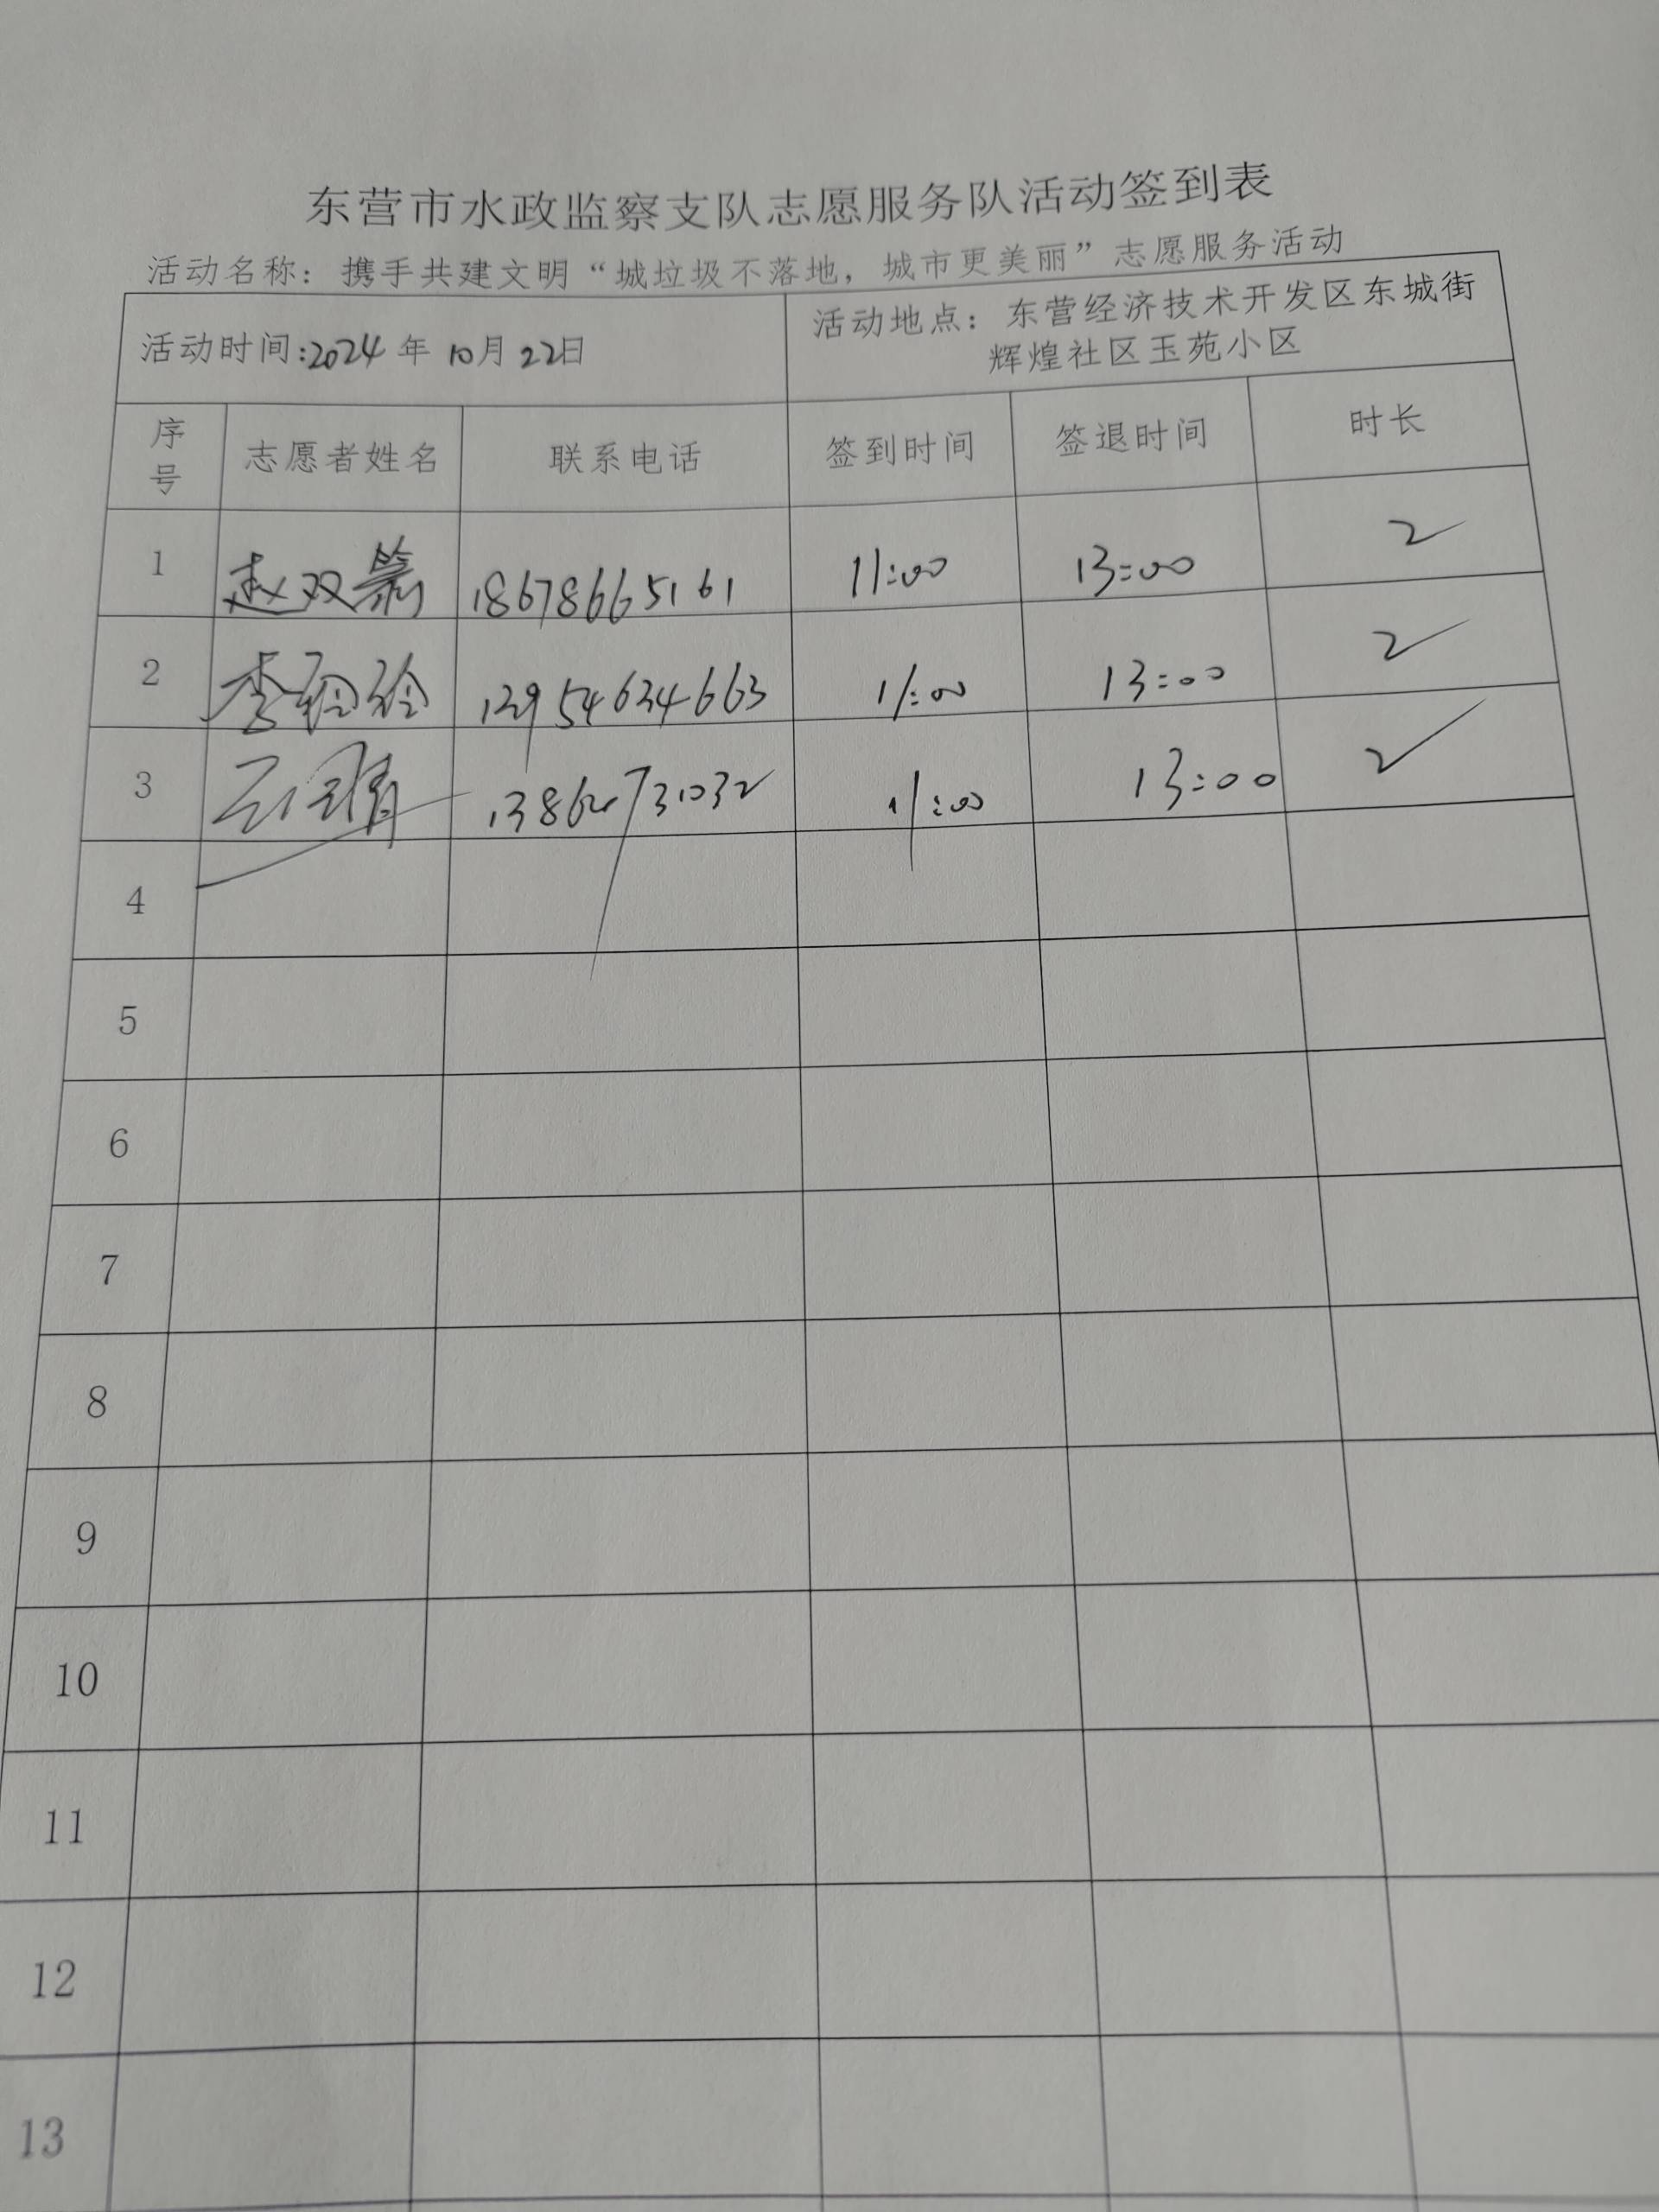 东营市水政监察支队志愿服务队活动签到表
活动名称：携手共建文明“城垃圾不落地，城市更美丽”志愿服务活动
活动时间：2024年10月22日
活动地点：东营经济技术开发区东城街
辉煌社区玉苑小区
序号 志愿者姓名 联系电话 签到时间 签退时间 时长
1 赵双 18678665161 11:00 13:00 2
2 李 11:00 13:00 2
3 11:00 13:00 2
4
5
6
7
8
9
10
11
12
13